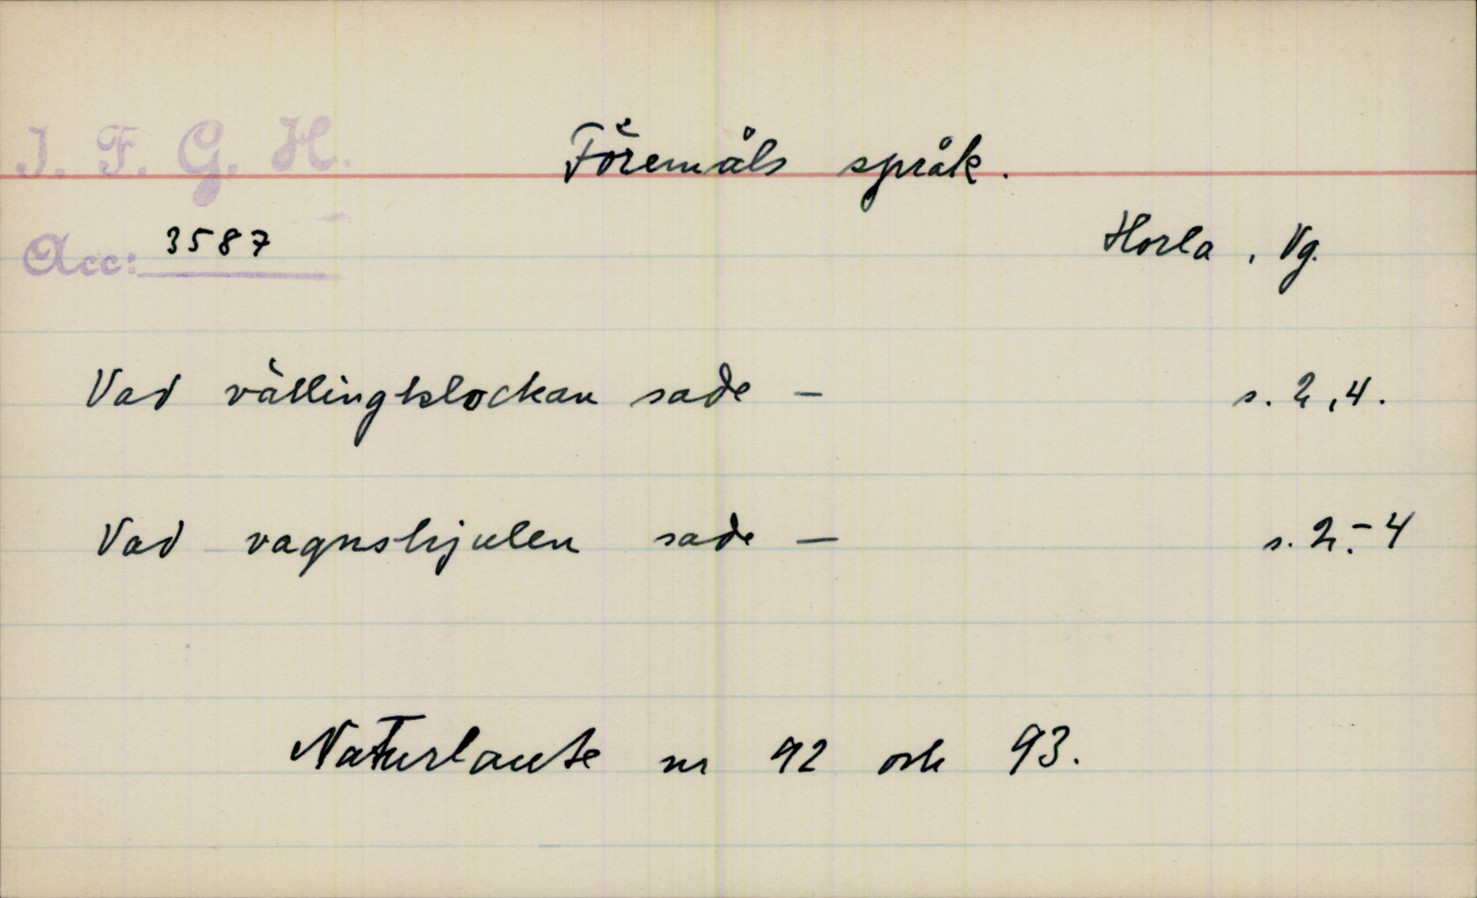 I. F. G. H.
Föremåls språk.
Acc: 3587
Horla, Vg.
Vad vällingklockan sade — s. 2, 4.
Vad vagnshjulen sade — s. 2.-4
Naturlaute nr 92 och 93.